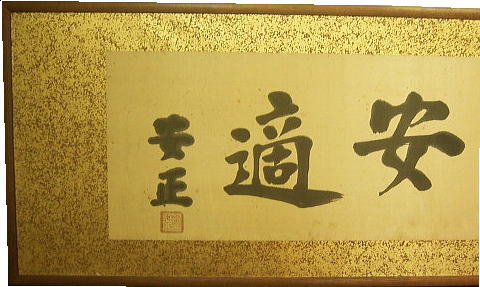 安適
安正